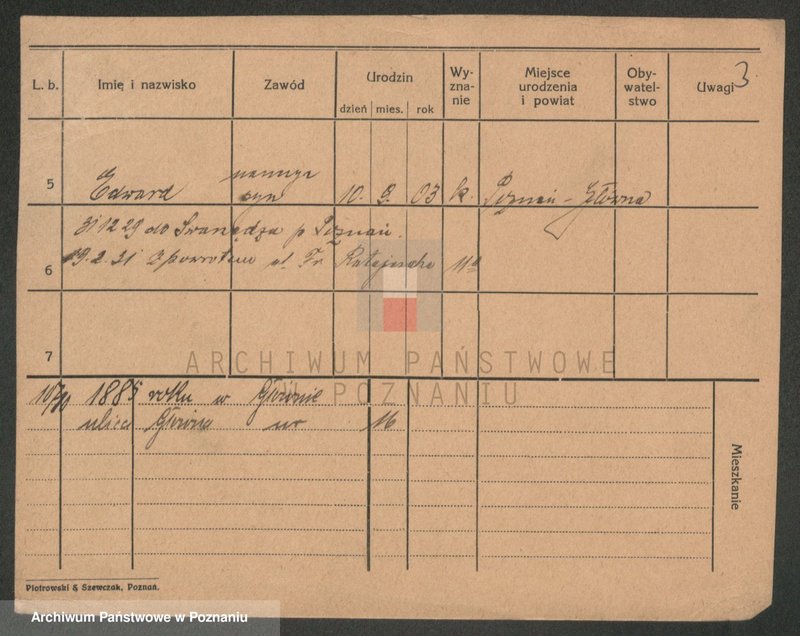 3
L. b. Imię i nazwisko Zawód Urodzin Wyznanie Miejsce urodzenia i powiat Obywatelstwo Uwagi
dzień mies. rok
5 Edward syn 10. 9. 03 k. Poznań - Główna
31 12 29 do Swarzędza p Poznań.
6 19.2.31 z powrotem ul. Fr. Ratajczaka 11a
7
ARCHIWUM PAŃSTWOWE
W POZNANIU
1885 roku w Głównie
ulica Główna nr 16
Mieszkanie
Piotrowski & Szewczak, Poznań.
Archiwum Państwowe w Poznaniu